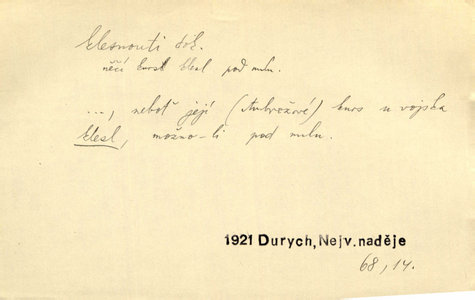 klesnouti dok.
něčí kurs klesl pod nulu.
..., neboť její (Ambrožové) kurs u vojska
klesl, možno-li pod nulu.
1921 Durych, Nejv. naděje
68, 14.